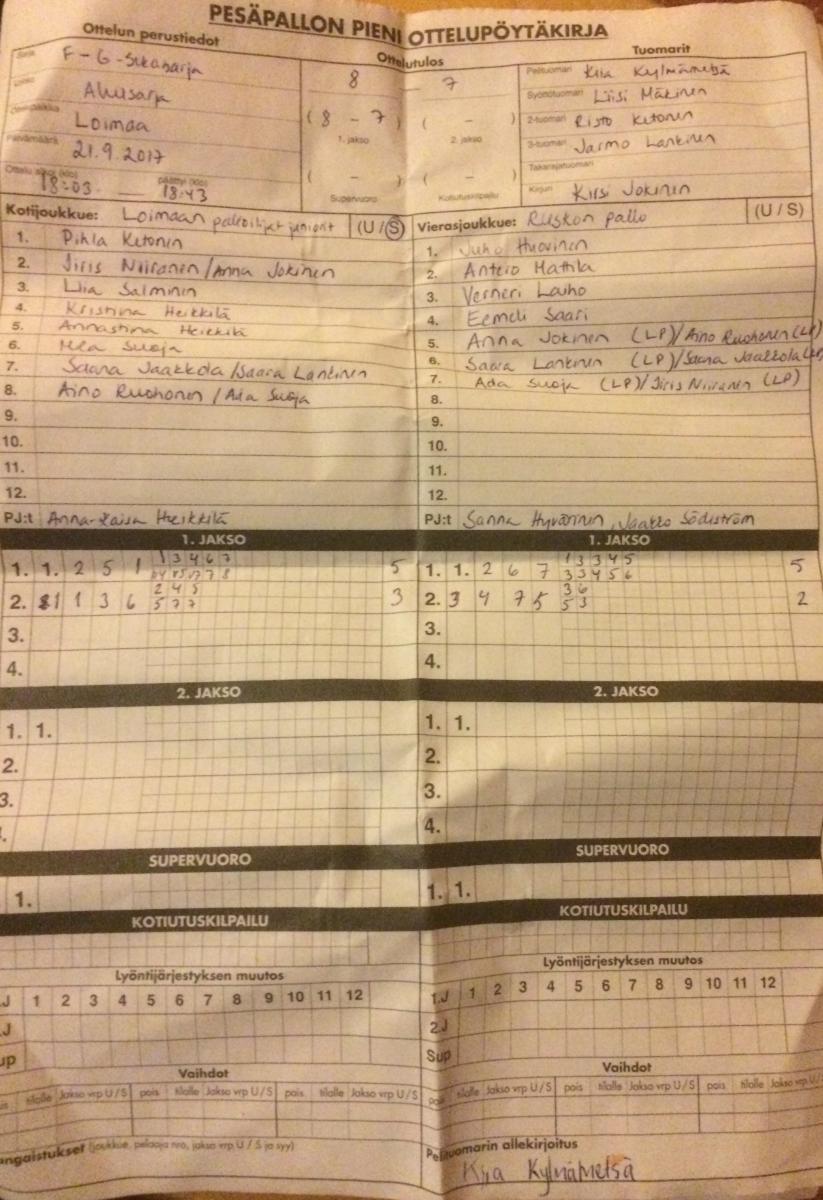 PESÄPALLON PIENI OTTELUPÖYTÄKIRJA
Ottelun perustiedot
Ottelutulos
Tuomarit
Sarja F-G-Sekasarja
8 – 7
Pelituomari Kiia Kylmämetsä
Lohko Aluesarja
Syöttötuomari Liisi Mäkinen
Ottelupaikka Loimaa
(8 – 7)
( – )
1. jakso
2. jakso
2-tuomari Risto Ketonen
Päivämäärä 21.9.2017
3-tuomari Jarmo Lankinen
Takarajatuomari
Ottelu alkoi (klo) päättyi (klo)
18:03 18:43
( – )
( – )
Supervuoro
Kotiutuskilpailu
Kirjuri Kirsi Jokinen
Kotijoukkue: Loimaan palloilijat juniorit (U / S)
1. Pihla Ketonen
2. Jiris Niiranen/Anna Jokinen
3. Liia Salminen
4. Kristina Heikkilä
5. Annastina Heikkilä
6. Mea Suoja
7. Saana Jaakkola/Saara Lankinen
8. Aino Ruohonen/Ada Suoja
9.
10.
11.
12.
PJ:t Anna-Kaisa Heikkilä
Vierasjoukkue: Ruskon pallo (U / S)
1. Juho Huovinen
2. Anteio Mattila
3. Verneri Launo
4. Eemeli Saari
5. Anna Jokinen (LP)/Aino Ruohonen (LP)
6. Saara Lankinen (LP)/Saana Jaakkola (LP)
7. Ada Suoja (LP)/Jiris Niiranen (LP)
8.
9.
10.
11.
12.
PJ:t Sanna Hyvärinen, Jaakko Söderström
1. JAKSO
1. 1. 2 5 1
1 3 4 6 7
5
2. 1 1 3 6
2 4 5
5 7 7
3
3.
4.
1. JAKSO
1. 1. 2 6 7
1 3 3 4 5
3 3 4 5 6
5
2. 3 4 7 5
3 6
5 3
2
3.
4.
2. JAKSO
1. 1.
2.
3.
2. JAKSO
1. 1.
2.
3.
4.
SUPERVUORO
1.
SUPERVUORO
1. 1.
KOTIUTUSKILPAILU
KOTIUTUSKILPAILU
Lyöntijärjestyksen muutos
.J 1 2 3 4 5 6 7 8 9 10 11 12
.J
up
Lyöntijärjestyksen muutos
1.J 1 2 3 4 5 6 7 8 9 10 11 12
2.J
Sup
Vaihdot
tilalle Jakso vrp U/S pois tilalle Jakso vrp U/S pois tilalle Jakso vrp U/S
Vaihdot
pois tilalle Jakso vrp U/S pois tilalle Jakso vrp U/S pois tilalle Jakso vrp U/S
angaistukset (joukkue, pelaaja nro, jakso vrp U / S ja syy)
Pelituomarin allekirjoitus
Kiia Kylmämetsä